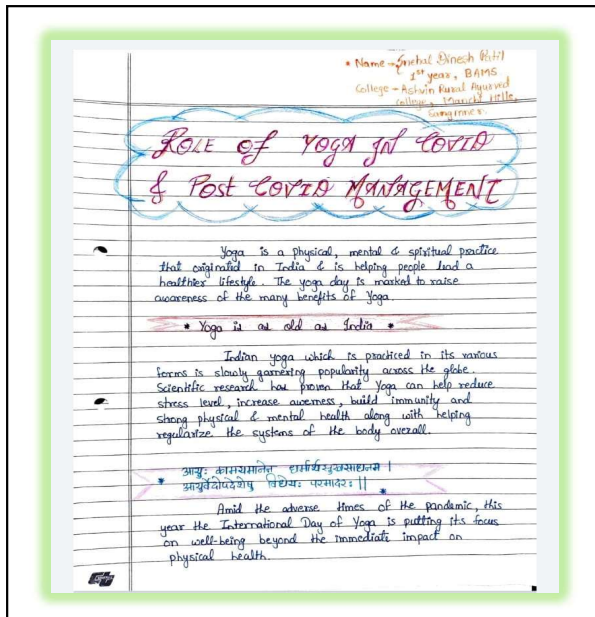 * Name → Snehal Dinesh Patil
1st year, BAMS
College - Ashvin Rural Ayurved
College, Manchi Hill,
Sangamner.
ROLE OF YOGA IN COVID
& POST COVID MANAGEMENT
Yoga is a physical, mental & spiritual practice
that originated in India & is helping people lead a
healthier lifestyle. The yoga day is marked to raise
awareness of the many benefits of Yoga.
* Yoga is as old as India *
Indian yoga which is practiced in its various
forms is slowly garnering popularity across the globe.
Scientific research has proven that Yoga can help reduce
stress level, increase awerness, build immunity and
strong physical & mental health along with helping
regularize the systems of the body overall.
आयुः कामयमानेन धर्मार्थसुखसाधनम् ।
* आयुर्वेदोपदेशेषु विधेयः परमादरः ॥ *
Amid the adverse times of the pandemic, this
year the International Day of Yoga is putting its focus
on well-being beyond the immediate impact on
physical health.